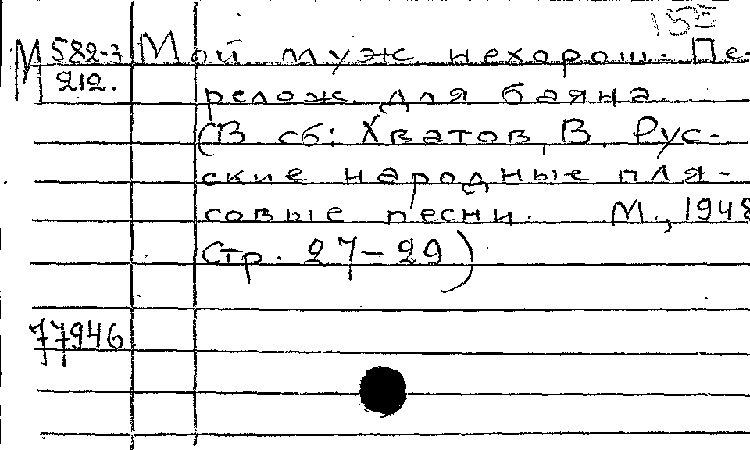 155
М 582-3 Мой муж нехорош. Пе-
212. релож. для баяна.
(В сб: Хватов, В. Рус-
ские народные пля-
совые песни. М., 1948
Стр. 27-29)
77946